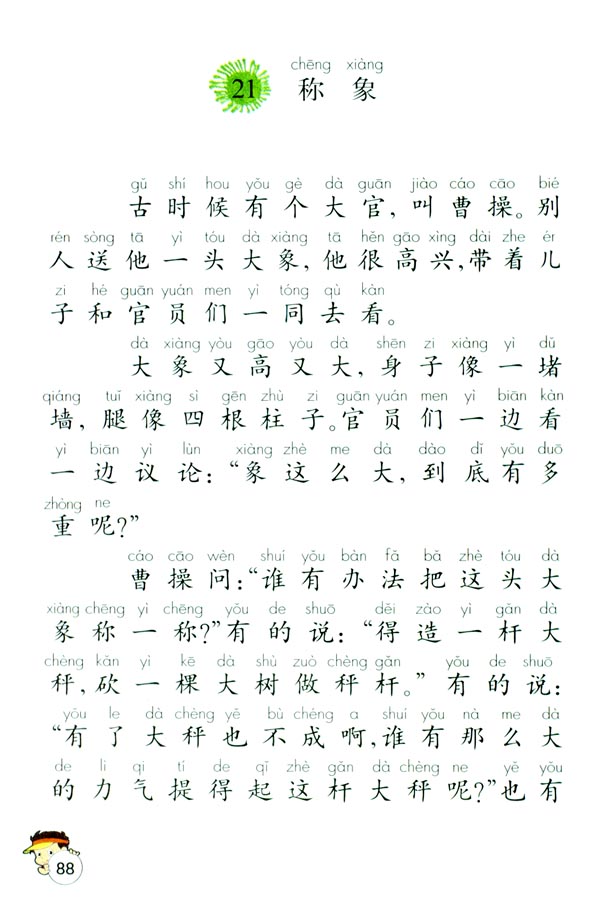 chēng xiàng
21 称象
gǔ shí hou yǒu gè dà guān jiào cáo cāo bié
古时候有个大官,叫曹操。别
rén sòng tā yì tóu dà xiàng tā hěn gāo xìng dài zhe ér
人送他一头大象,他很高兴,带着儿
zi hé guān yuán men yì tóng qù kàn
子和官员们一同去看。
dà xiàng yòu gāo yòu dà shēn zi xiàng yì dǔ
大象又高又大,身子像一堵
qiáng tuǐ xiàng sì gēn zhù zi guān yuán men yì biān kàn
墙,腿像四根柱子。官员们一边看
yì biān yì lùn xiàng zhè me dà dào dǐ yǒu duō
一边议论:“象这么大,到底有多
zhòng ne
重呢?”
cáo cāo wèn shuí yǒu bàn fǎ bǎ zhè tóu dà
曹操问:“谁有办法把这头大
xiàng chēng yì chēng yǒu de shuō děi zào yì gǎn dà
象称一称?”有的说:“得造一杆大
chèng kǎn yì kē dà shù zuò chèng gǎn yǒu de shuō
秤,砍一棵大树做秤杆。”有的说:
yǒu le dà chèng yě bù chéng a shuí yǒu nà me dà
“有了大秤也不成啊,谁有那么大
de lì qi tí de qǐ zhè gǎn dà chèng ne yě yǒu
的力气提得起这杆大秤呢?”也有
88